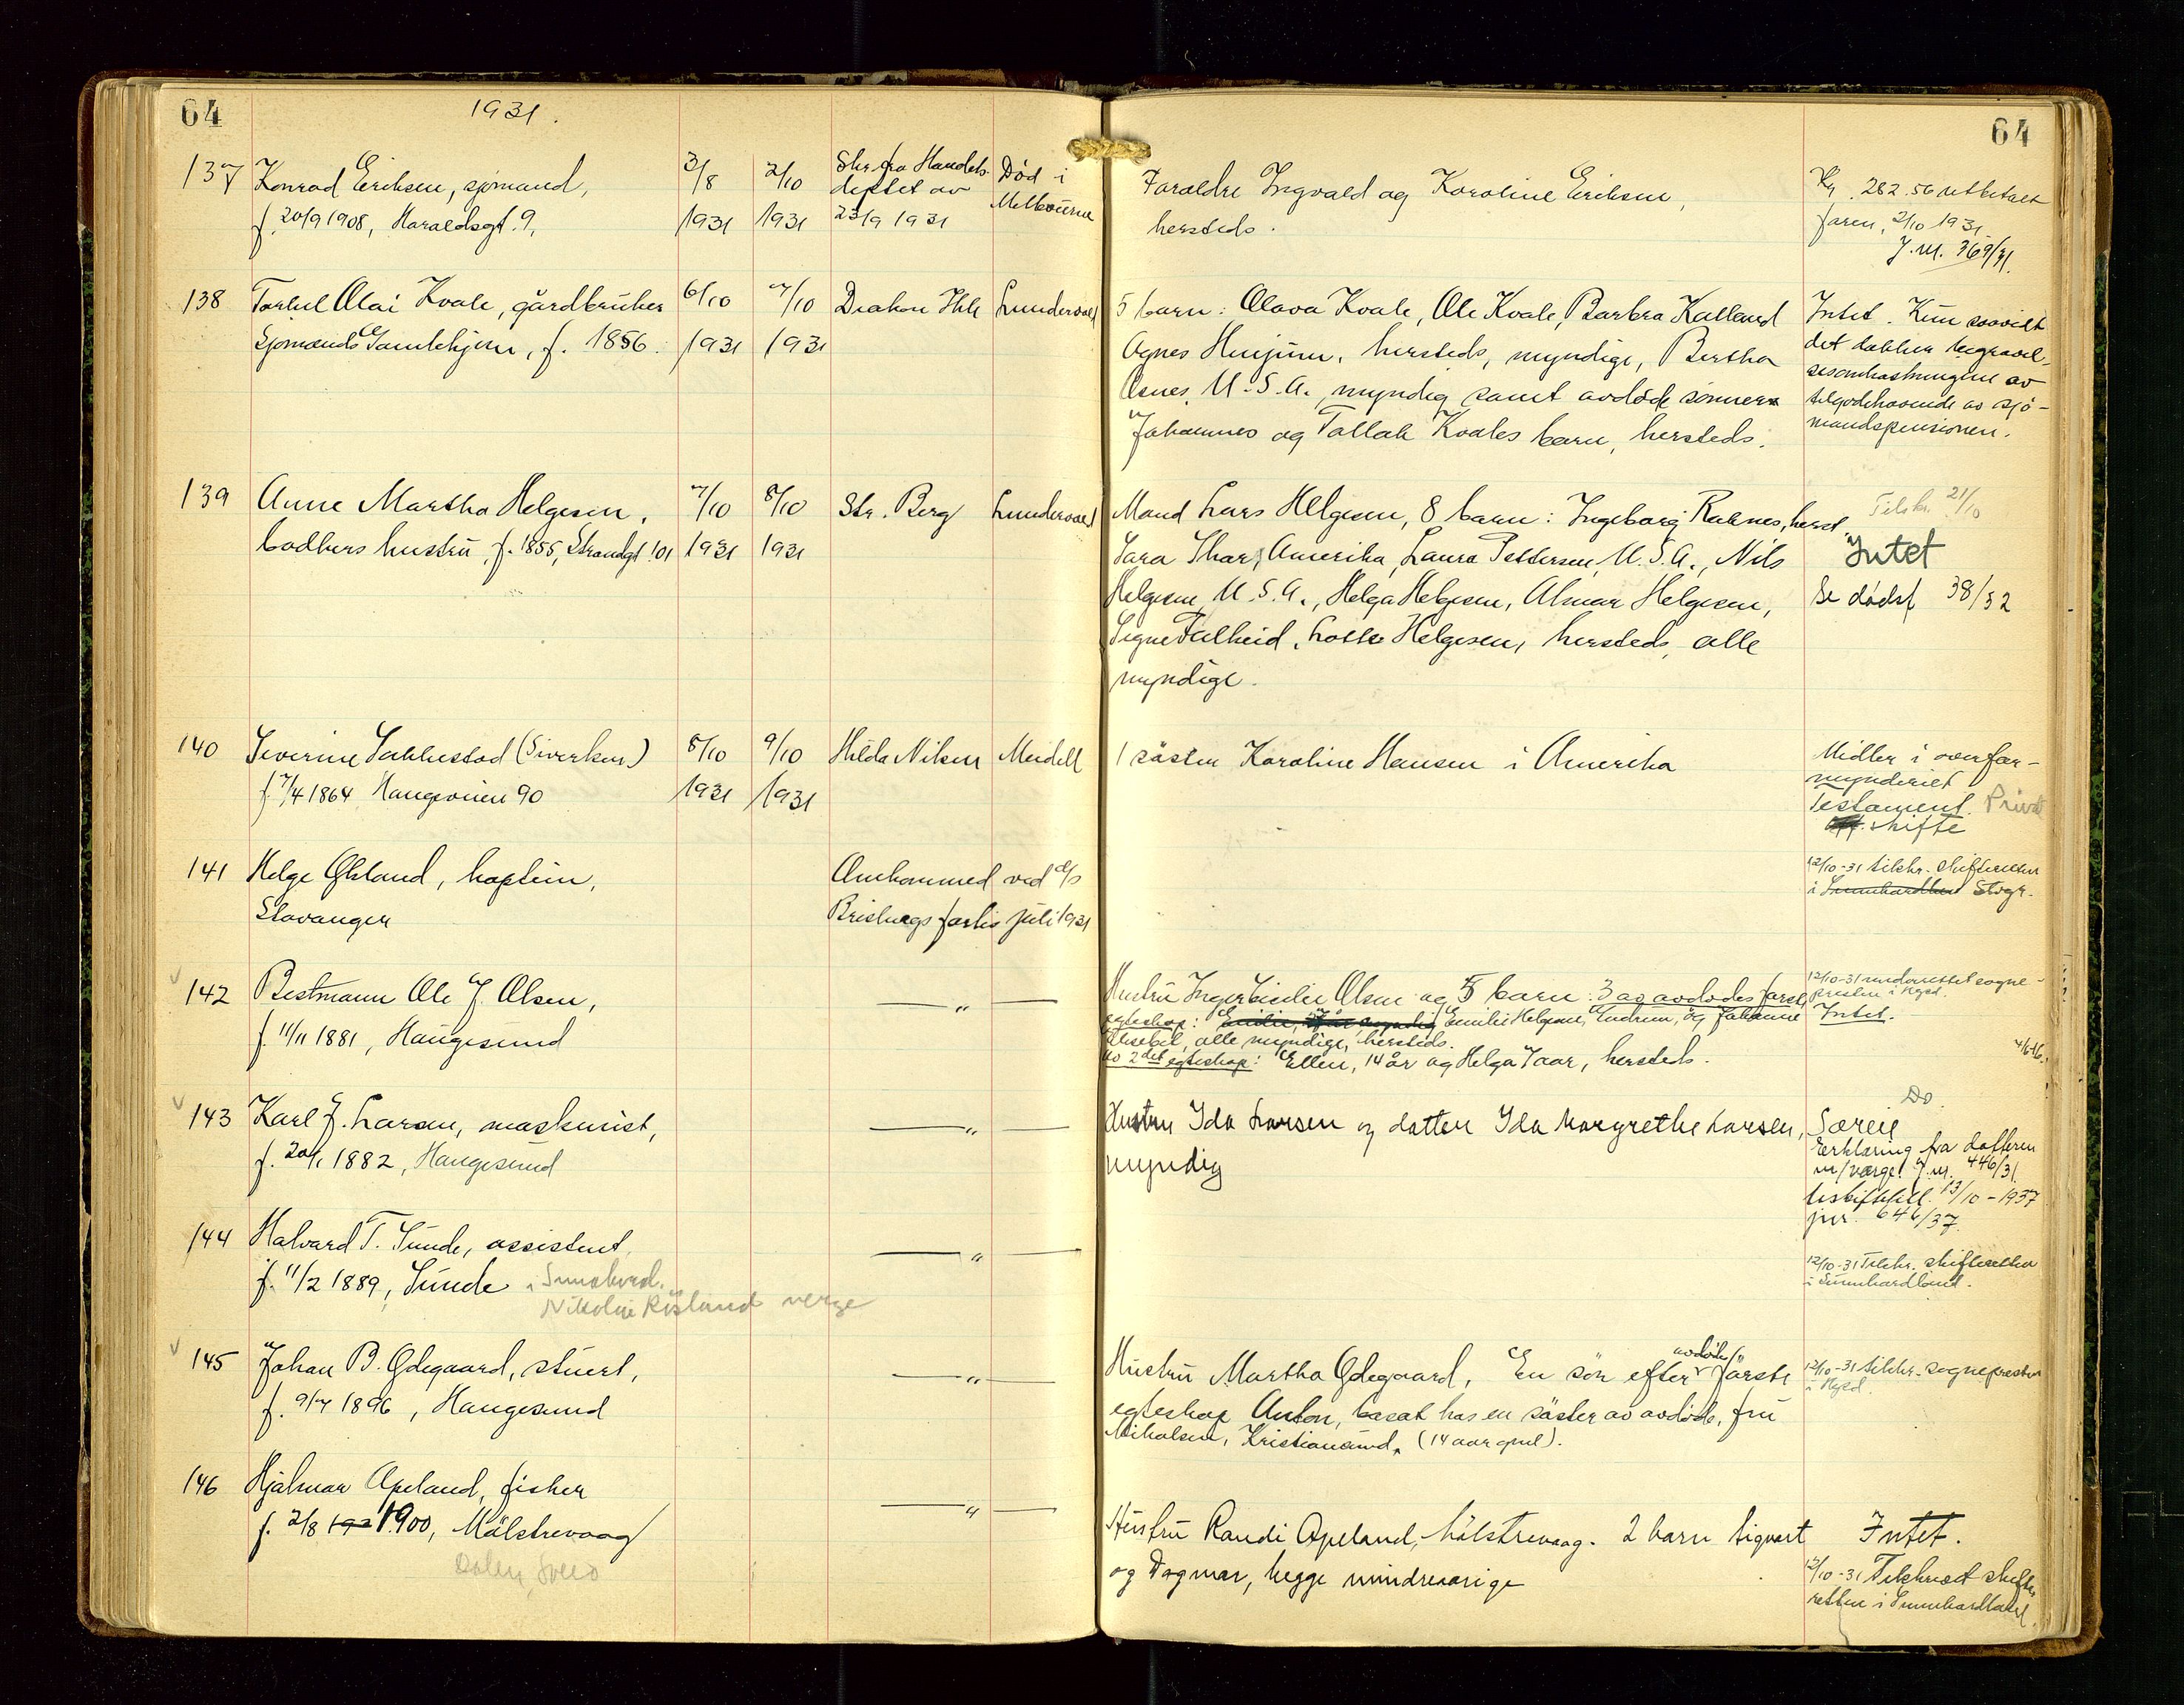 64
1931.
64
137 Konrad Eriksen, sjømand, 3/8 2/10 Skr. fra Handels- Død i
f. 20/9 1908, Haraldsgt. 9, 1931 1931 deptet av 23/9 1931 Melbourne
Foraldre Ingvald og Karoline Eriksen,
hersteds.
Kr. 282.56 utbetalt
faren, 2/10 1931
J.nr. 369/31.
138 Torkel Olai Kvale, gårdbruker 6/10 7/10 Diakon Lundervold
Sjømands Gamlehjem, f. 1856. 1931 1931
5 barn: Olava Kvale, Ole Kvale, Barbra Kalland
Agnes hersteds, myndige, Bertha
Osnes, U.S.A. myndig samt avdøde sønners
Johannes og Tallak Kvales barn, hersteds.
Intet. Kun saavidt
det dækker begravel-
sesomkostningene av
tilgodehavende av sjø-
mandspensionen.
139 Anne Martha Helgesen, 7/10 8/10 Str. Berg Lundervold
bødkers hustru, f. 1855, Strandgt. 101 1931 1931
Mand Lars Helgesen, 8 barn: Ingeborg Raknes, herst.
Sara Amerika, Laura Pettersen, U.S.A., Nils
Helgesen, U.S.A., Helga Helgesen, Almar Helgesen,
Signe Lotte Helgesen, hersteds, alle
myndige.
Tilskr. 21/10
Intet
Se dødsf 38/32
140 Severine Sakkestad (Siverksen) 8/10 9/10 Hilda Nilsen Meidell
f. 7/4 1864 Haugeveien 90 1931 1931
1 søster Karoline Hansen i Amerika
Midler i overfor-
mynderiet
Testament. Privat
skifte
141 Helge Økland, kaptein, Omkommed ved d/s
Stavanger Brisbergs forlis juli 1931
12/10-31 tilskr. skifteretten
i Sunnhordland Stvgr.
142 Bestmann Ole J. Olsen, —"—
f. 11/11 1881, Haugesund
Hustru Inger Cecilie Olsen og 5 barn: 3 av avdødes første
egteskap: Emilie Helgesen, Gudrun, og Johanne
Elisebet, alle myndige, hersteds.
av 2det egteskap: Ellen, 14 år og Helga 7 aar, hersteds.
12/10-31 underrettet sogne-
presten i Hgsd.
Intet.
143 Karl J. Larsen, maskinist, —"—
f. 20/1 1882, Haugesund
Hustru Ida Larsen og datter Ida Margrethe Larsen,
myndig
Do.
Særeie
Erklæring fra datteren
m/verge. J.nr. 446/31.
Uskiftetill. 13/10-1937
jnr. 646/37.
144 Halvard T. Sunde, assistent, —"—
f. 11/2 1889, Sunde i Sunnhord.
Nikolai Risland verge
12/10-31 Tilskr. skifteretten
i Sunnhordland.
145 Johan B. Ødegaard, stuert, —"—
f. 9/7 1896, Haugesund
Hustru Martha Ødegaard, En søn efter avdødes første
egteskap Anton, bosat hos en søster av avdøde, fru
Nikolsen, Kristiansund, (14 aar gml).
12/10-31 tilskr. sognepresten
i Hgsd.
146 Hjalmar Apeland, fisker —"—
f. 2/8 192 1900, Mølstrevaag
Dalen, Sveio
Hustru Randi Apeland, Mølstrevaag. 2 barn Sigvart
og Dagmar, begge mindreaarige
Intet.
12/10-31 Tilskrevet skifte-
retten i Sunnhordland.